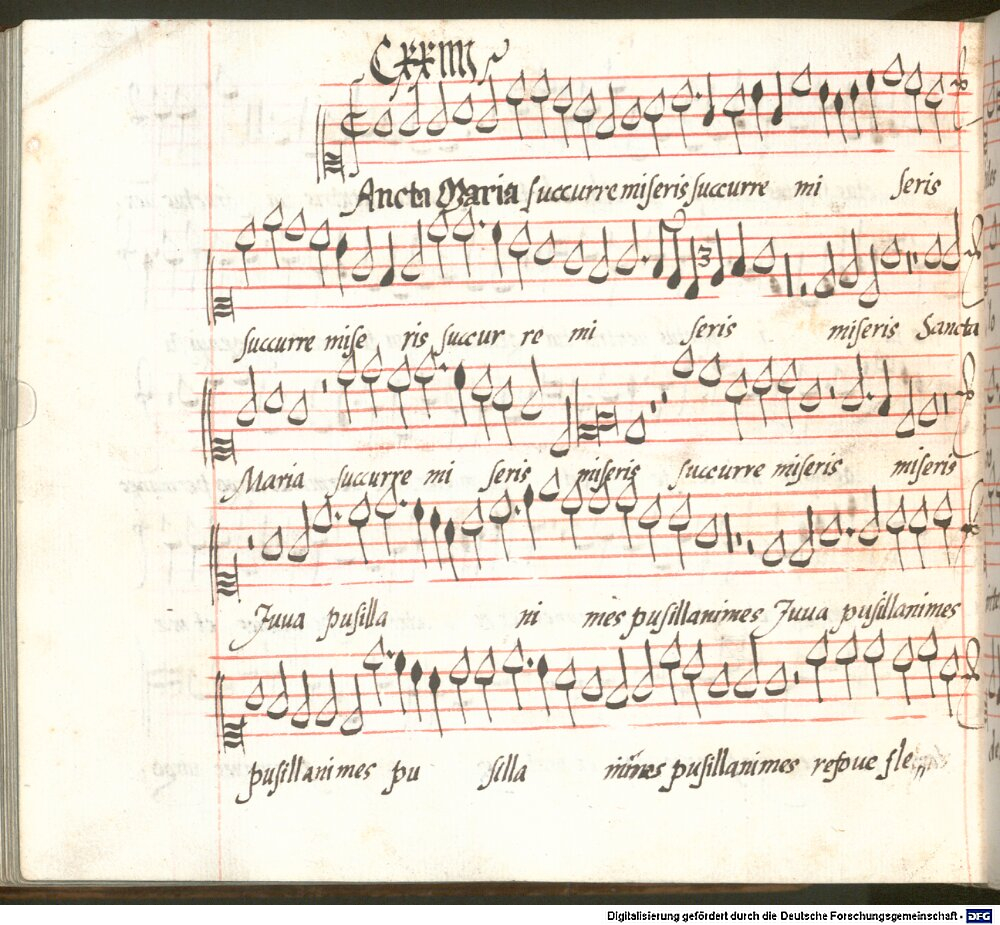 CXXIIII
Ancta Maria succurre miseris succurre mi seris
succurre mise ris succur re mi seris miseris Sancta
Maria succurre mi seris miseris succurre miseris miseris
Juva pusilla ni mes pusillanimes Juva pusillanimes
pusillanimes pu silla nimes pusillanimes refove fle
Digitalisierung gefördert durch die Deutsche Forschungsgemeinschaft - DFG